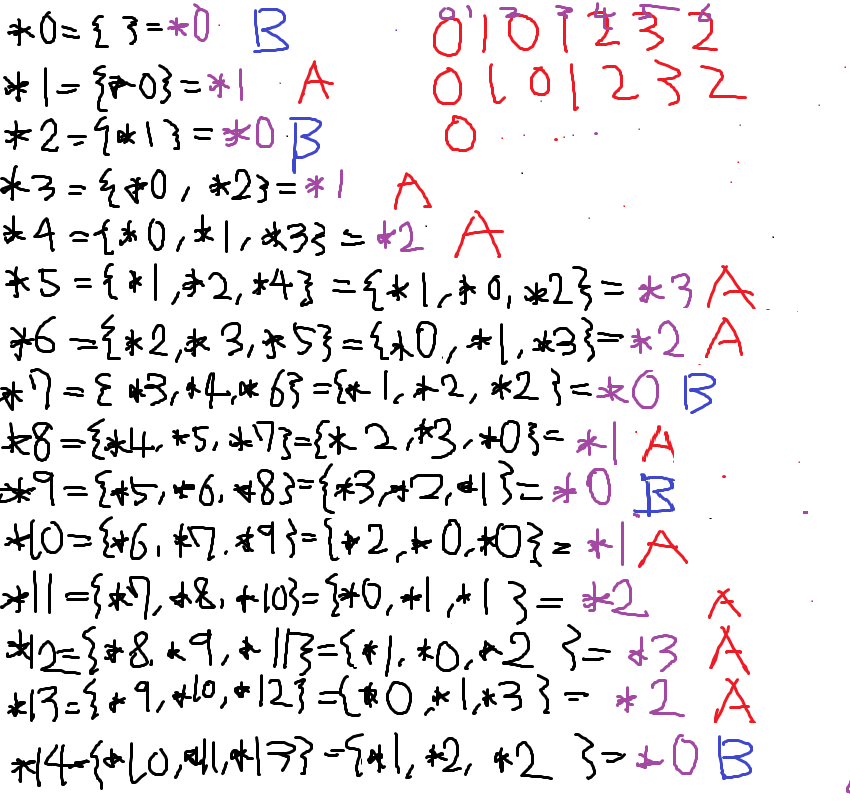 *0={ }=*0 B
*1={*0}=*1 A
*2={*1}=*0 B
*3={*0, *2}=*1 A
*4={*0,*1,*3}=*2 A
*5={*1,*2,*4}={*1,*0,*2}=*3 A
*6={*2,*3,*5}={*0,*1,*3}=*2 A
*7={*3,*4,*6}={*1,*2,*2}=*0 B
*8={*4,*5,*7}={*2,*3,*0}=*1 A
*9={*5,*6,*8}={*3,*2,*1}=*0 B
*10={*6,*7.*9}={*2,*0,*0}=*1 A
*11={*7,*8,*10}={*0,*1,*1}=*2 A
*12={*8.*9,*11}={*1.*0,*2}=*3 A
*13={*9,*10,*12}={*0,*1,*3}=*2 A
*14={*10,*11,*13}={*1,*2,*2}=*0 B
0 1 2 3 4 5 6
0 1 0 1 2 3 2
0 1 0 1 2 3 2
0